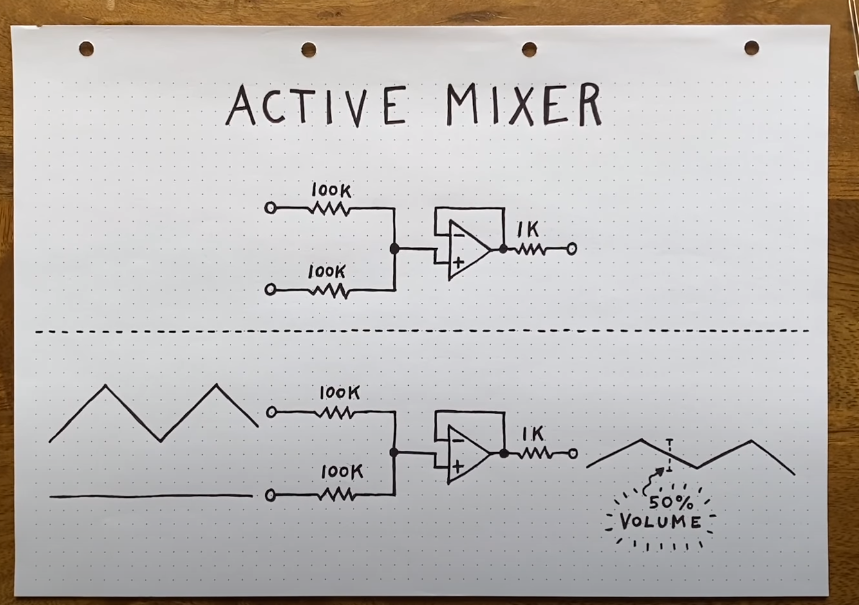 ACTIVE MIXER
100K
100K
1K
-
+
100K
100K
1K
-
+
50%
VOLUME